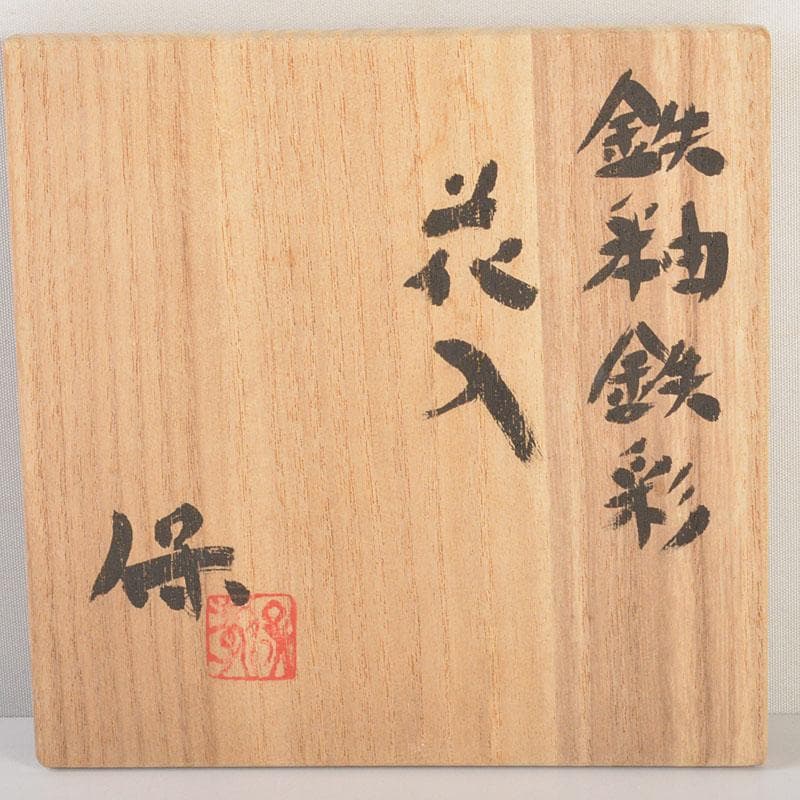 鉄釉鉄彩
花入
保